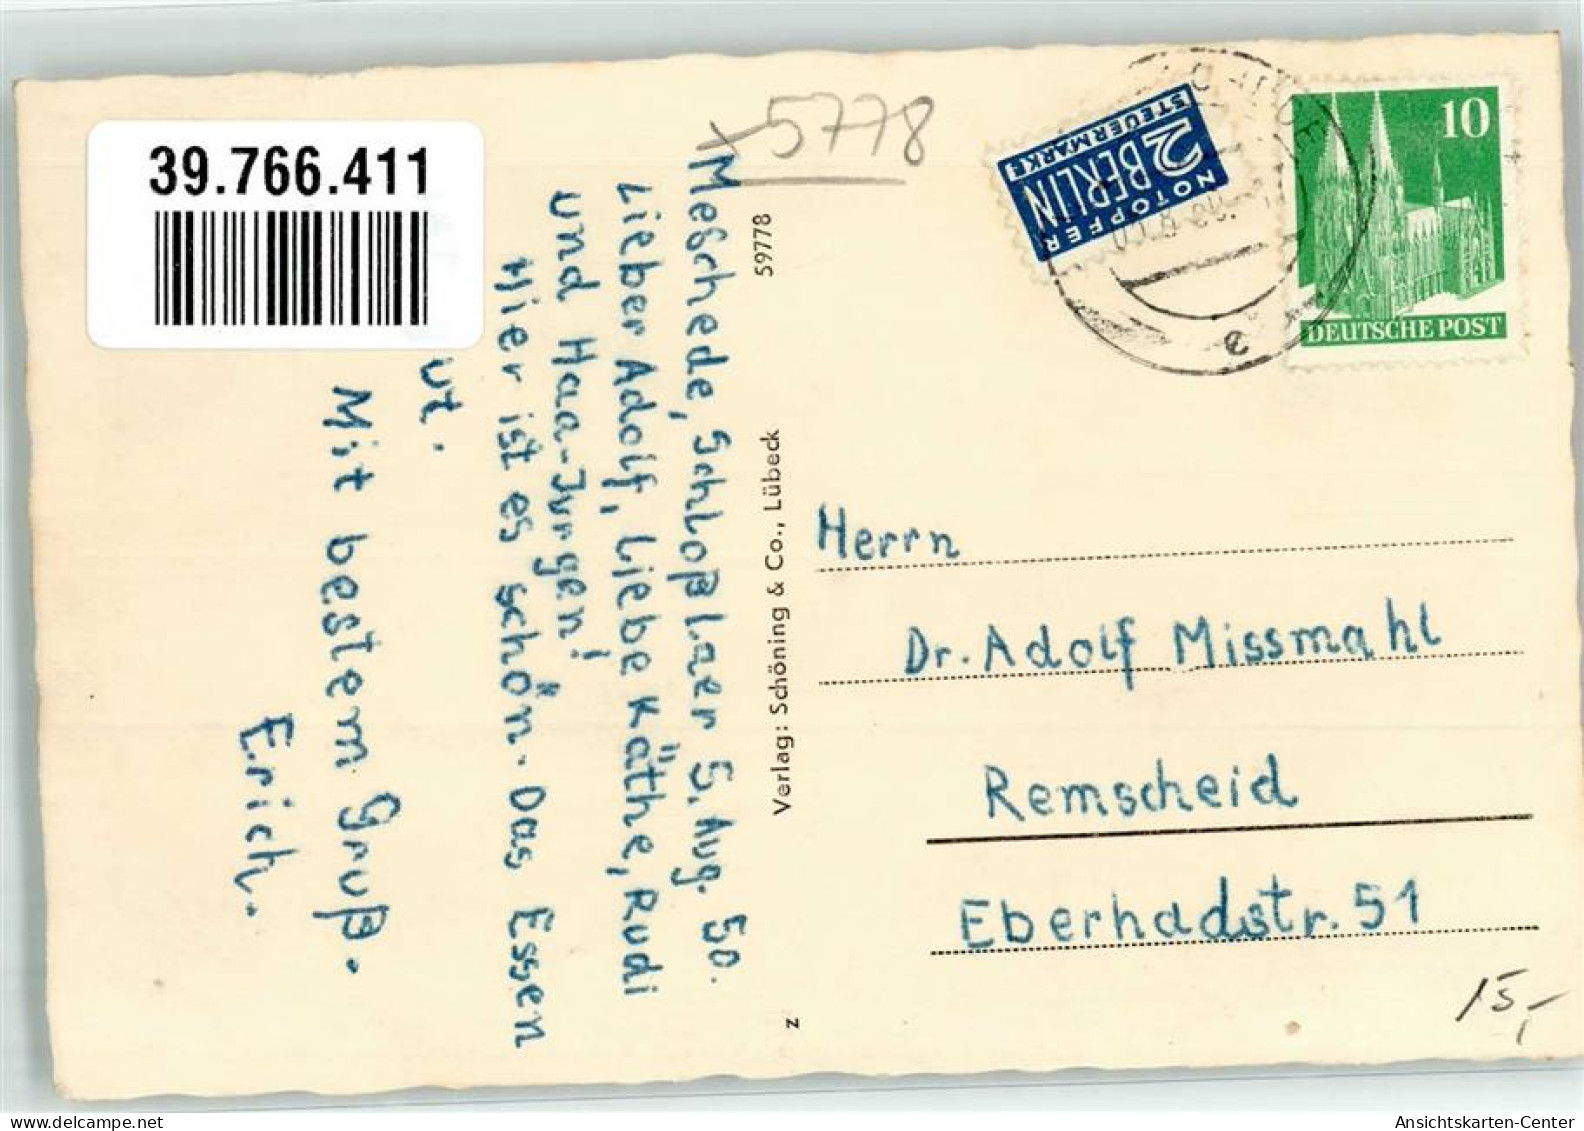 39.766.411
5778
Meßchede, Schloßlaer 5. Aug. 50.
Lieber Adolf, Liebe Käthe, Rudi
und Haa-Jürgen!
Hier ist es schön. Das Essen
ut.
Mit bestem Gruß.
Erich.
59778
Verlag: Schöning & Co., Lübeck
Z
NOTOPFER
2 BERLIN
STEUERMARKE
e
10
DEUTSCHE POST
Herrn
Dr. Adolf Missmahl
Remscheid
Eberhadstr. 51
15,-
delcampe.net
Ansichtskarten-Center